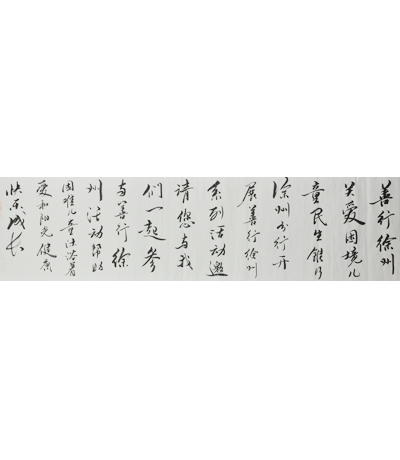 善行徐州
关爱困境儿
童民生银行
徐州分行开
展善行徐州
系列活动邀
请您与我
们一起参
与善行徐
州活动帮助
困难儿童沐浴着
爱和阳光健康
快乐成长